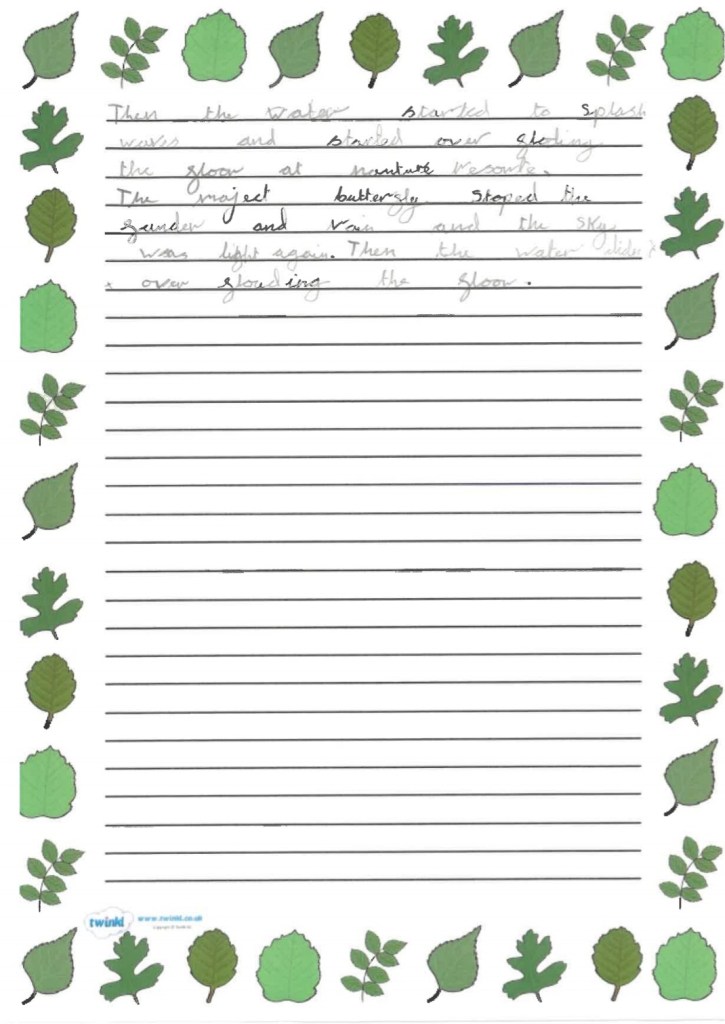 Then the water started to splash
waves and started over floding
the floor at nanture resorte.
The maject butterfly stoped the
funder and rain and the sky
was light again. Then the water
over flouding the floor.
twinkl www.twinkl.co.uk